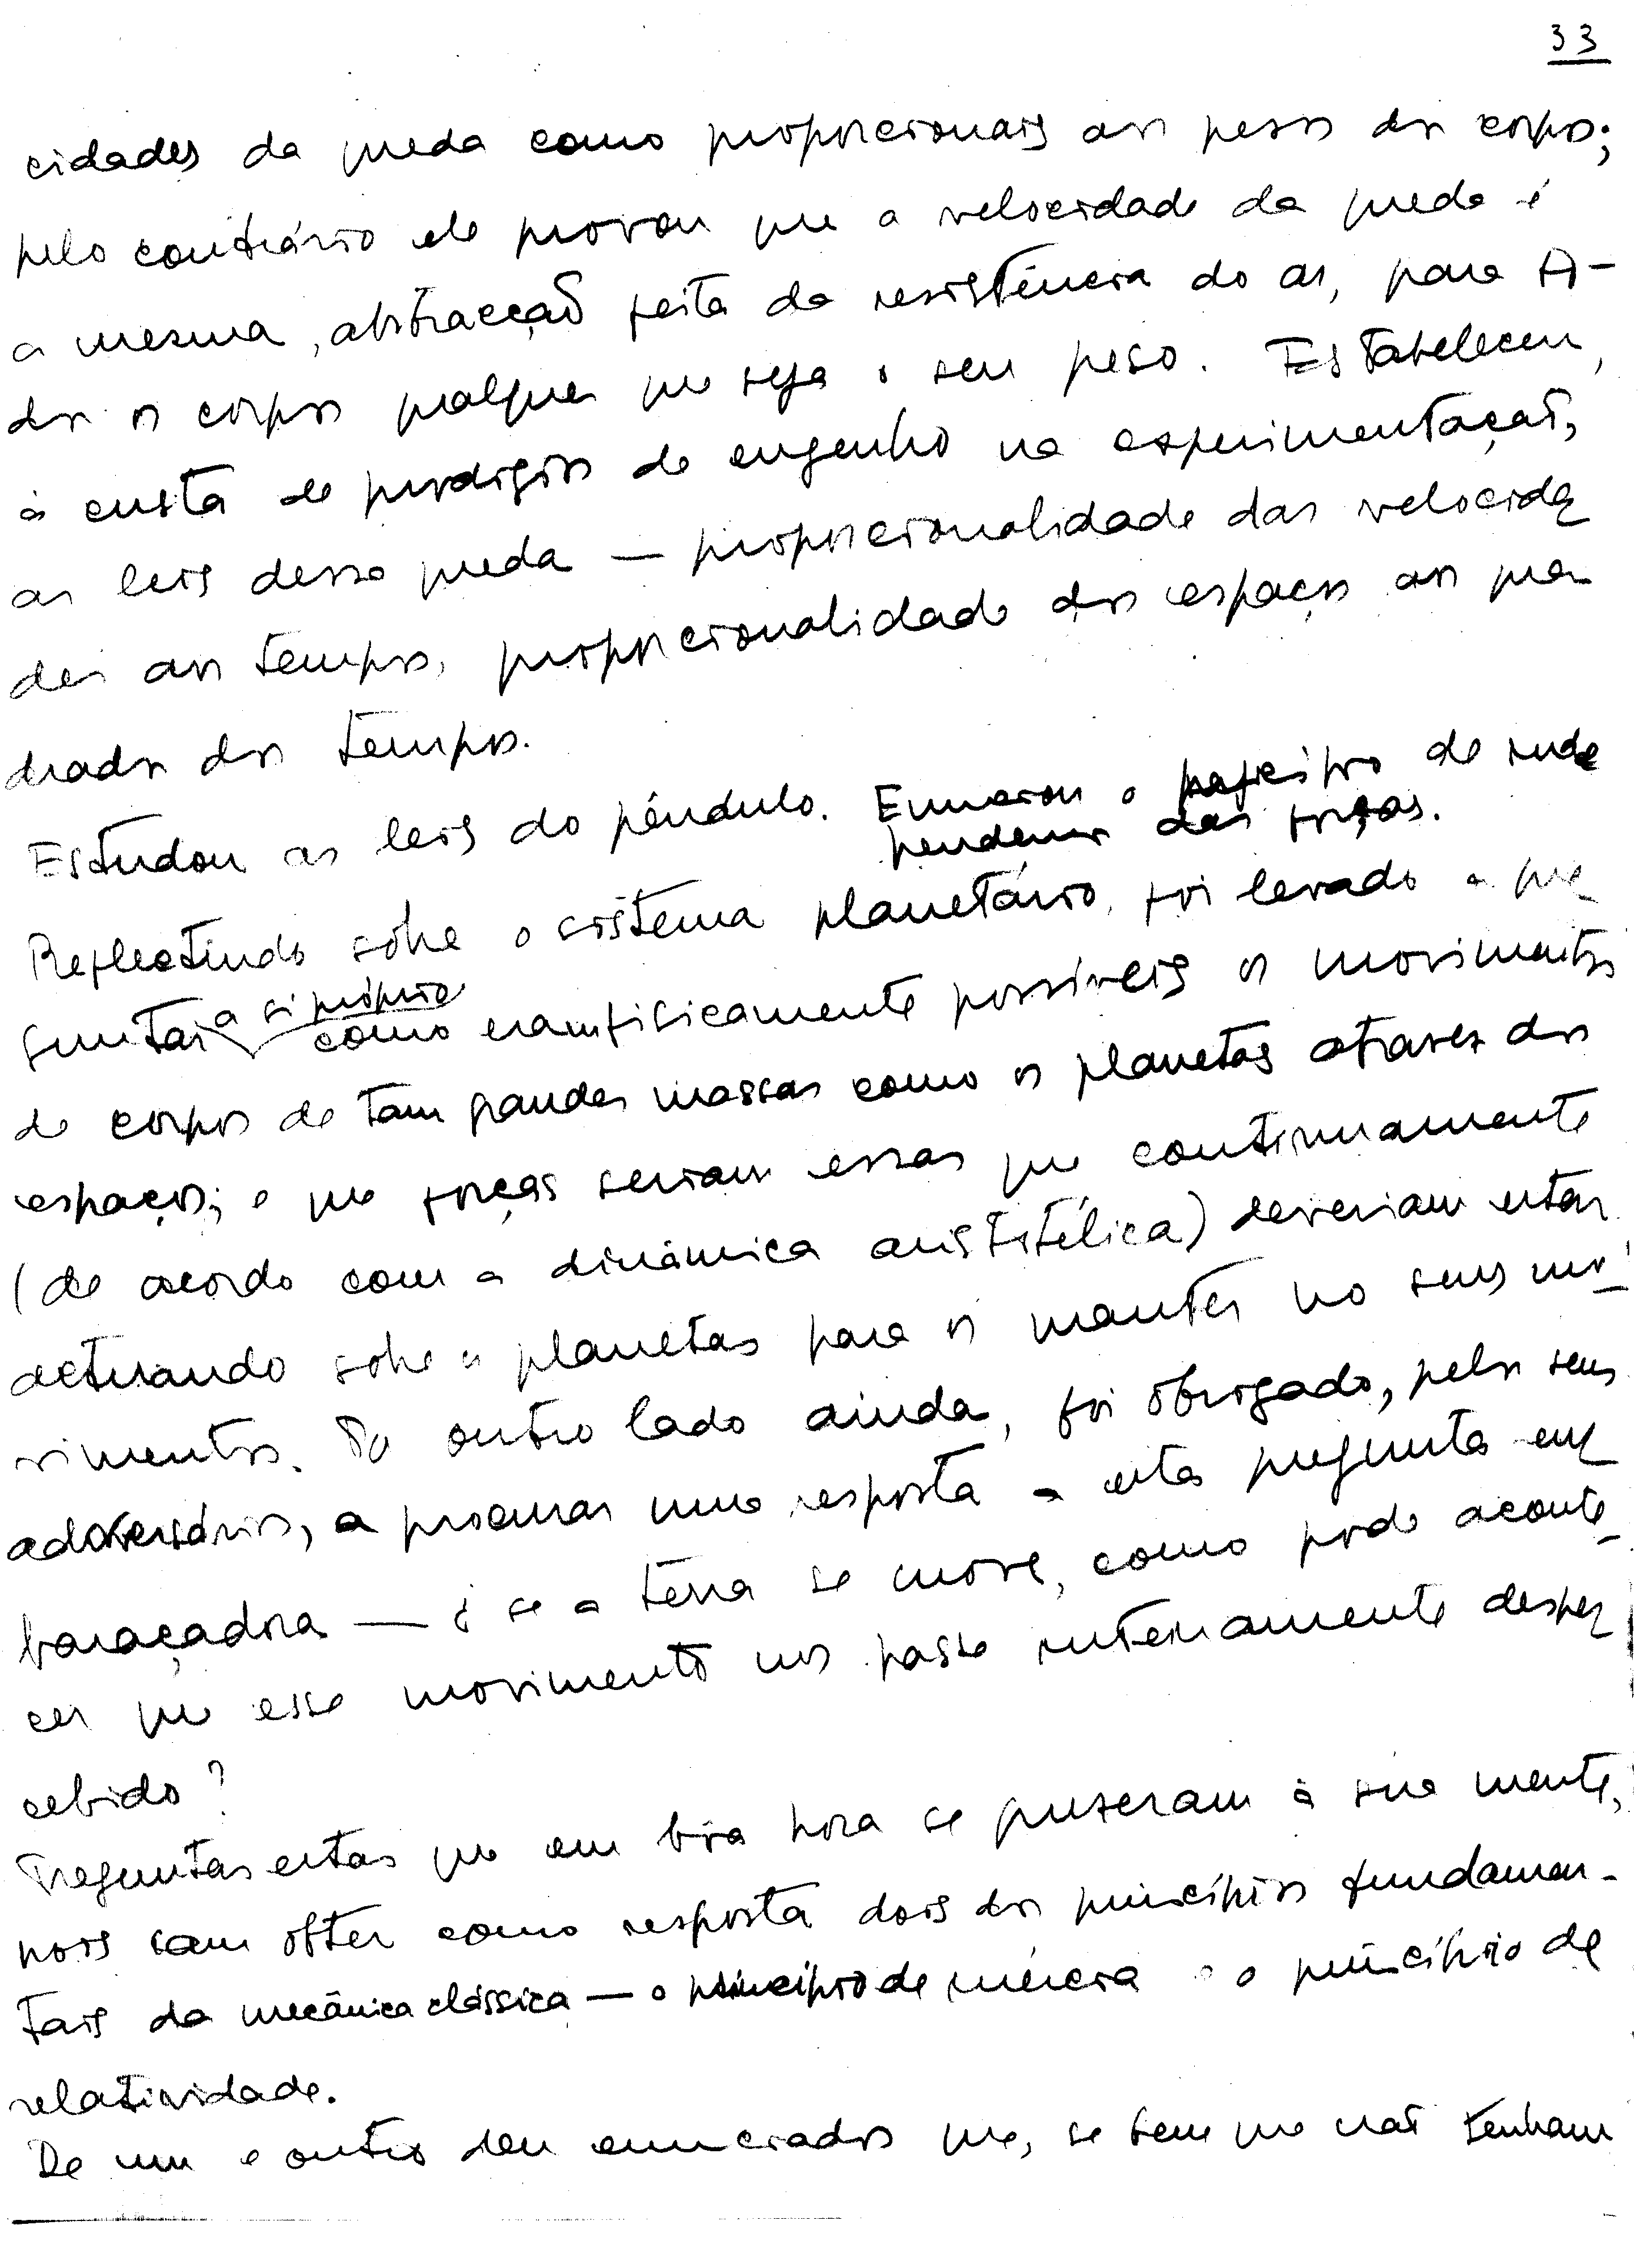 33
cidades da queda como proporcionais aos pesos dos corpos;
pelo contrário ele provou que a velocidade da queda é
a mesma, abstracção feita da resistência do ar, para to-
dos os corpos qualquer que seja o seu peso. Estabeleceu,
à custa de prodígios de engenho na experimentação,
as leis dessa queda — proporcionalidade das velocida
des aos tempos, proporcionalidade dos espaços aos qua-
drados dos tempos.
Estudou as leis do pêndulo. Enunciou o princípio de inde
pendencia das forças.
Reflectindo sôbre o sistema planetário, foi levado a pre
guntar a si próprio como eram fisicamente possíveis os movimentos
de corpos de tam grandes massas como os planetas atravez dos
espaços; e que forças seriam essas que continuamente
(de acordo com a dinâmica aristotélica) deveriam estar
actuando sobre os planetas para os manter no seus mo
vimentos. Do outro lado ainda, foi obrigado, pelos seus
adversários, a procurar uma resposta a esta pregunta em
baraçadora — ¿ se a terra se move, como pode aconte
cer que esse movimento nos passe inteiramente desper
cebido?
Preguntas estas que em bôa hora se puzeram à sua mente,
pois iam obter como resposta dois dos princípios fundamen-
tais da mecânica clássica — o princípio de inércia e o princípio de
relatividade.
De um e outro deu enunciados que, se bem que não tenham